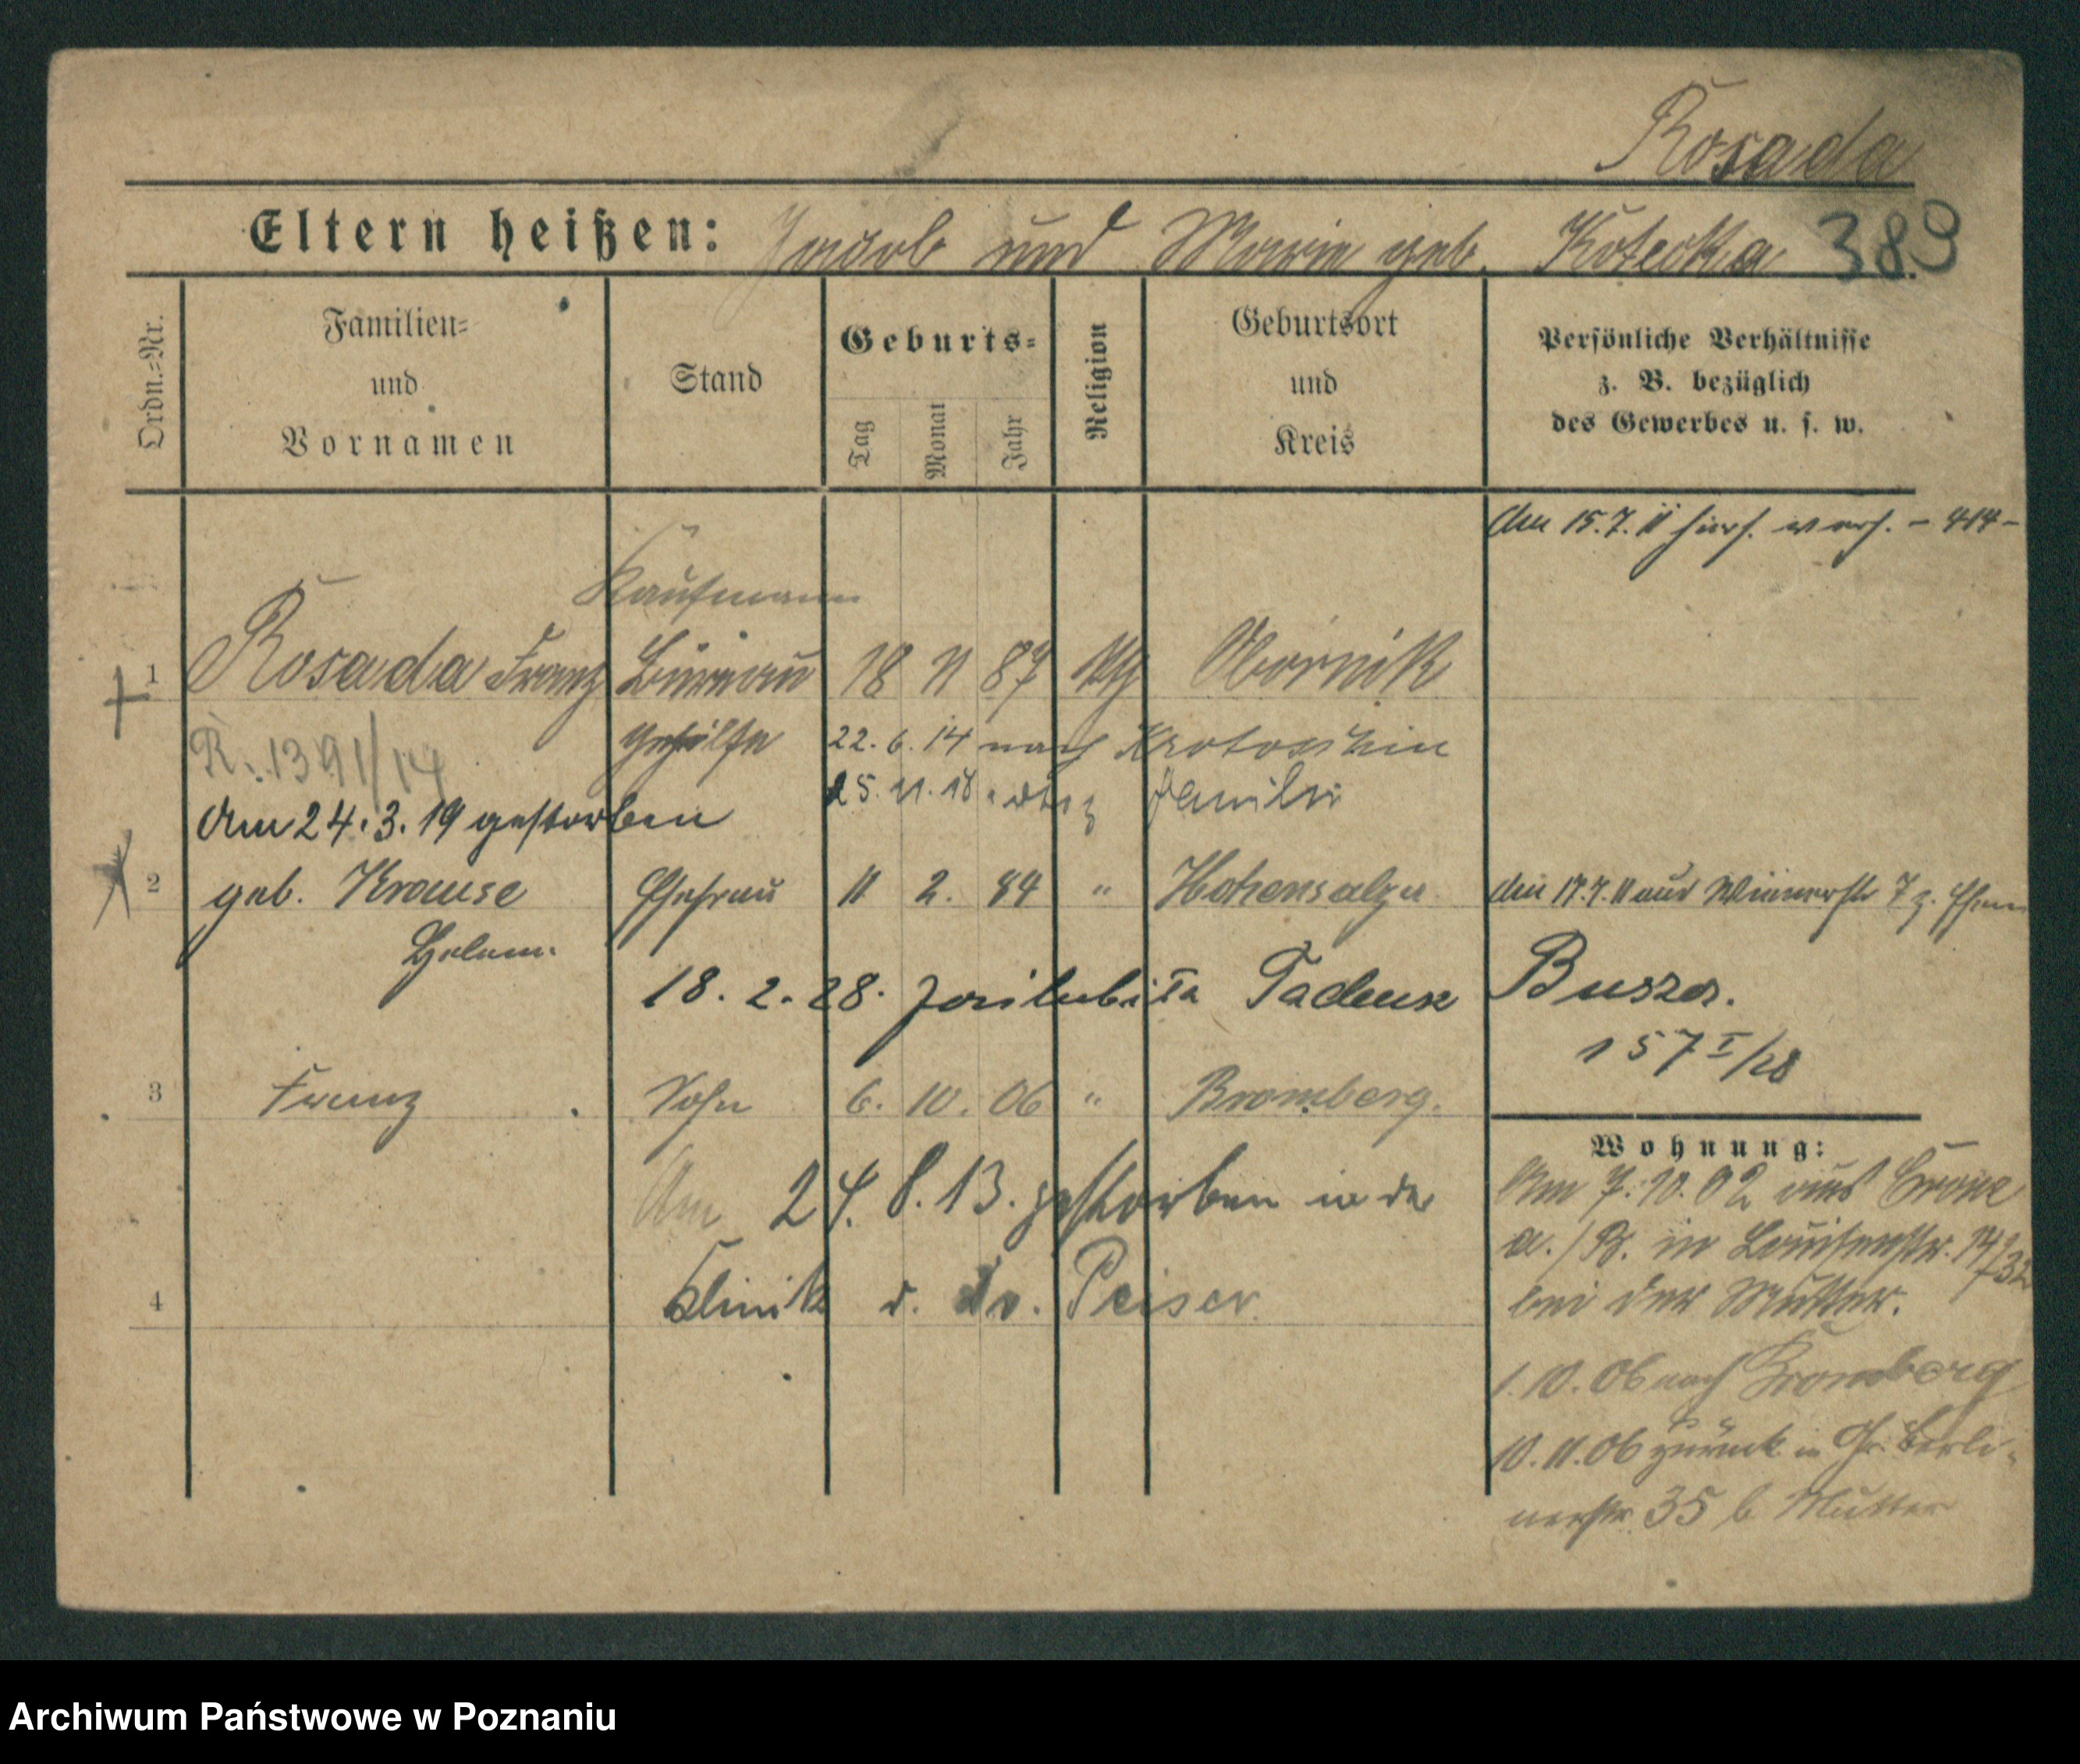 Rosada
Eltern heißen: Jacob und Marie geb. Kotecka 389
Ordn.=Nr.
Familien=
und
Vornamen
Stand
Geburts=
Tag
Monat
Jahr
Religion
Geburtsort
und
Kreis
Persönliche Verhältnisse
z. B. bezüglich
des Gewerbes u. s. w.
Am 15.7.11 hiers. verh. - 414 -
Kaufmann
1 Rosada Franz Büreau 18 11 87 Obornik
gehülfe 22.6.14 nach Krotoschin
R. 1391/14
25.11.18 Familie
Am 24.3.19 gestorben
2 geb. Krause Ehefrau 11 2. 84 " Hohensalza
Am 17.7.11 aus 7 z. Ehem
Helene
18.2.28. Tadeusz Busza.
157 I/28
3 Franz Sohn 6. 10. 06 " Bromberg.
Am 24.8.13. gestorben in der
4 Klinik v. Dr. Peiser.
Wohnung:
Am 7.10.02 aus Crone
a./B. in Louisenstr. 14/32
bei der Mutter.
1.10.06 nach Bromberg
10.11.06 zurück in Gr. Berli-
nerstr. 35 b. Mutter
Archiwum Państwowe w Poznaniu